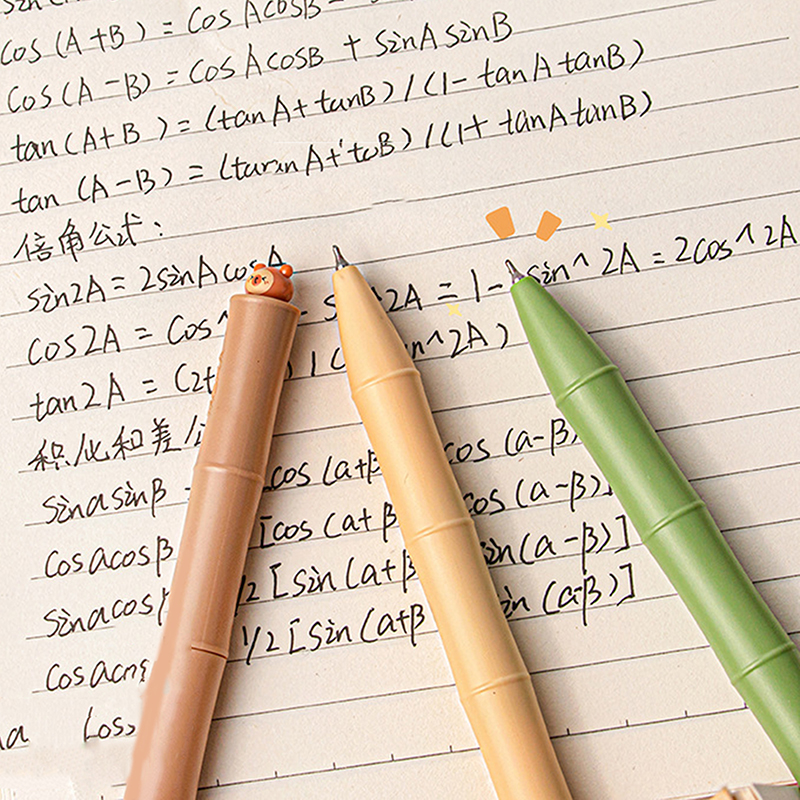 Cos(A+B) = Cos AcosB -
Cos(A-B) = CosAcosB + sinAsinB
tan(A+B) = (tanA+tanB)/(1-tanAtanB)
tan(A-B) = ( A+ B)/(1+tanAtanB)
倍角公式:
sin2A = 2sinAcosA
cos2A = Cos^ 2A = 1- sin^2A = 2cos^2A
tan2A = (2t )/( n^2A)
积化和差公
sinasinβ - cos(a+β cos(a-β)
cosacosβ [cos(a+β cos(a-β)]
sinacosβ 1/2[sin(a+β sin(a-β)]
cosa 1/2[sin(a+β in(a-β)]